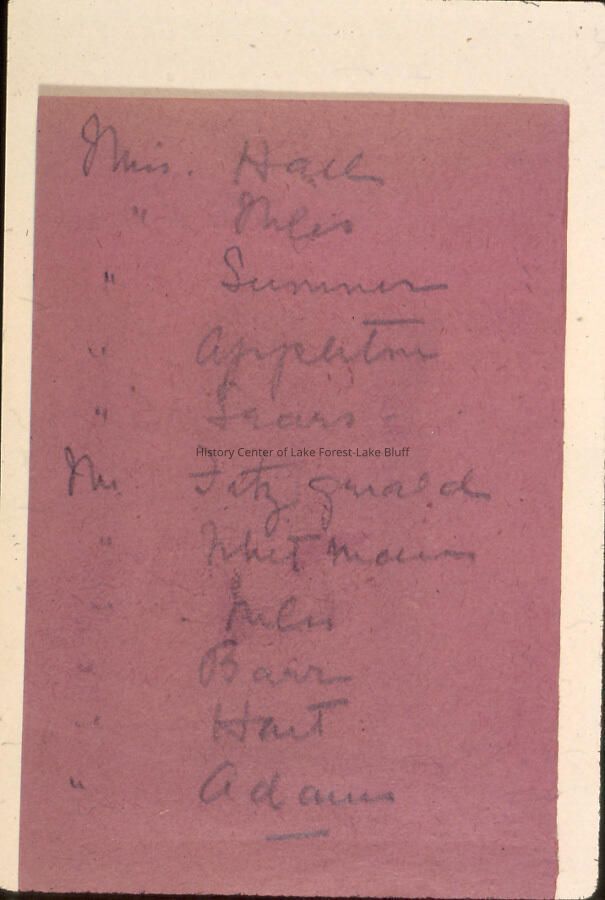 Miss. Hall
" Miles
" Sumner
" Appleton
" Sears
History Center of Lake Forest-Lake Bluff
Mr. Fitz gerald
"
" Miles
" Barr
" Hart
" Adams